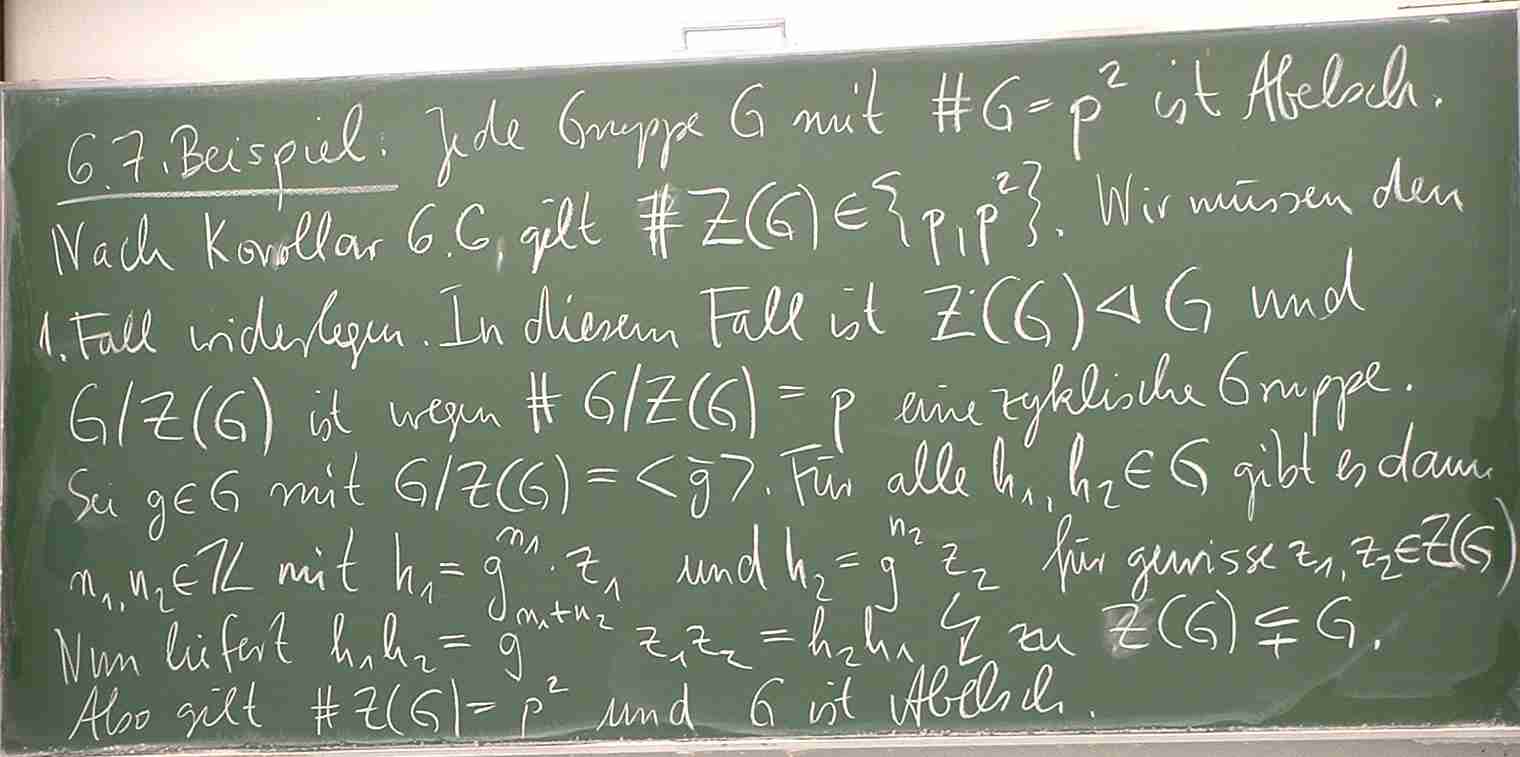 6.7. Beispiel: Jede Gruppe G mit #G = p² ist Abelsch.
Nach Korollar 6.6, gilt # Z(G) ∈ {p, p²}. Wir müssen den
1. Fall widerlegen. In diesem Fall ist Z(G) ⊲ G und
G/Z(G) ist wegen # G/Z(G) = p eine zyklische Gruppe.
Sei g ∈ G mit G/Z(G) = <ḡ>. Für alle h₁, h₂ ∈ G gibt es dann
n₁, n₂ ∈ ℤ mit h₁ = g^{n₁} · z₁ und h₂ = g^{n₂} z₂ für gewisse z₁, z₂ ∈ Z(G)
Nun liefert h₁h₂ = g^{n₁+n₂} z₁z₂ = h₂h₁ ↯ zu Z(G) ⊊ G.
Also gilt # Z(G) = p² und G ist Abelsch.